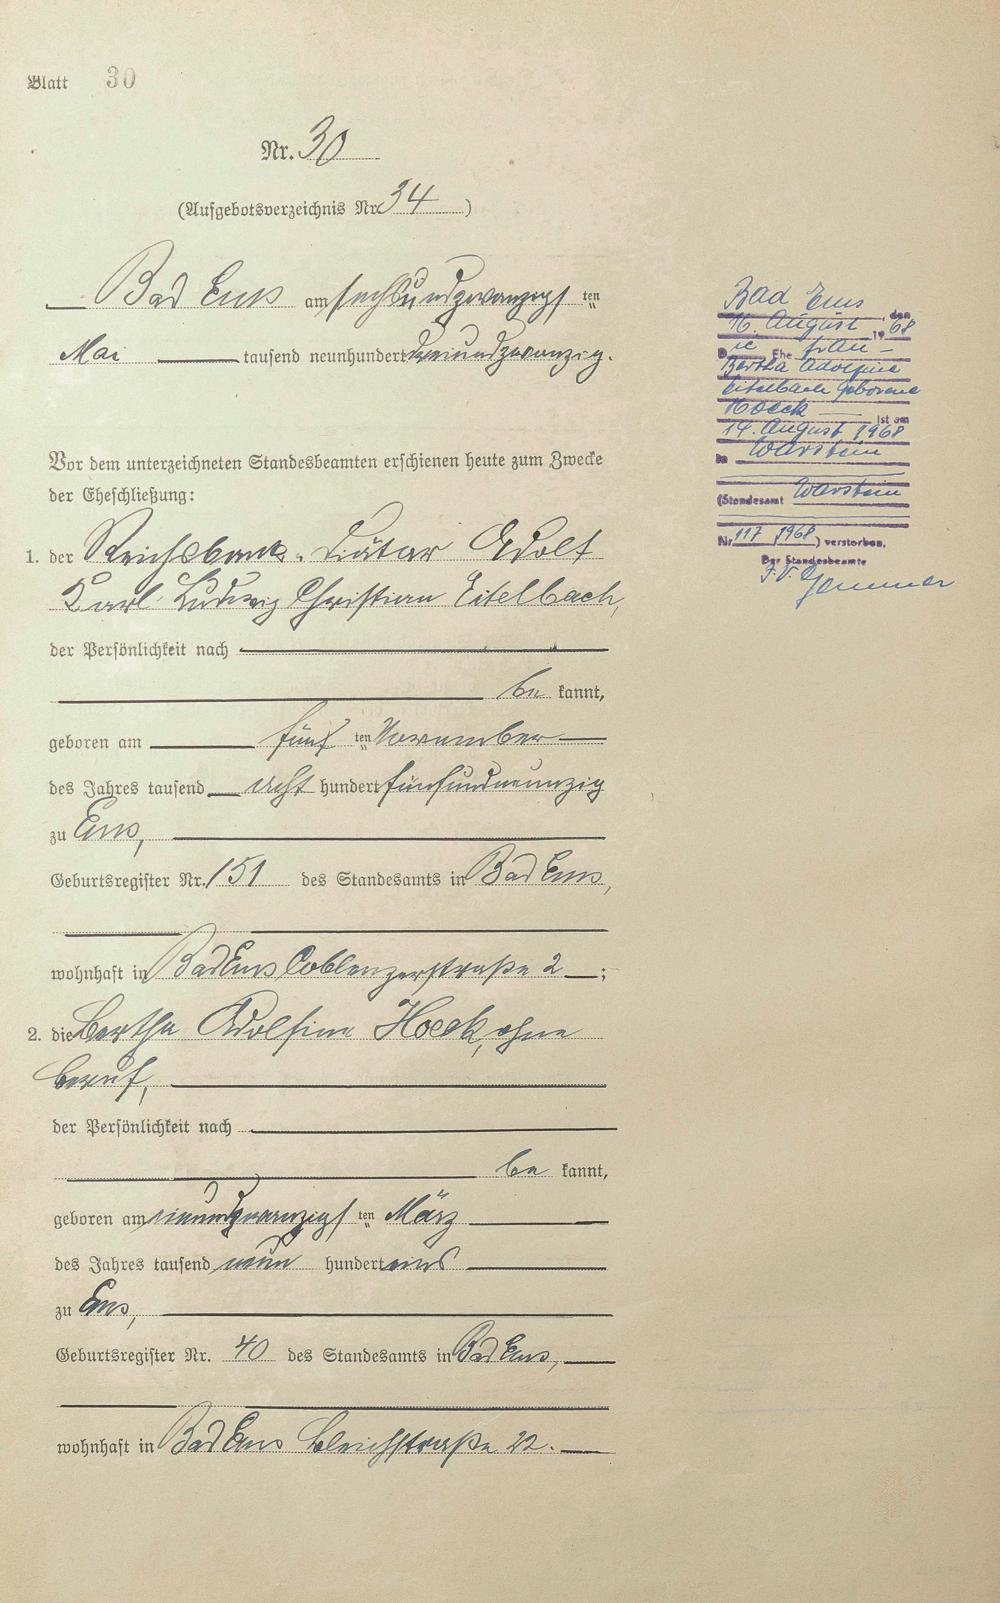 Blatt 30
Nr. 30
(Aufgebotsverzeichnis Nr. 34)
Bad Ems am sechsundzwanzigsten
Mai tausend neunhundert dreiundzwanzig.
Vor dem unterzeichneten Standesbeamten erschienen heute zum Zwecke
der Eheschließung:
1. der Reichsbank-Diätar Adolf
Karl Ludwig Christian Eitelbach,
der Persönlichkeit nach
be kannt,
geboren am fünf ten November
des Jahres tausend acht hundert fünfundneunzig
zu Ems,
Geburtsregister Nr. 151 des Standesamts in Bad Ems,
wohnhaft in Bad Ems Coblenzerstraße 2;
2. die Bertha Adolfine Hoeck, ohne
Beruf,
der Persönlichkeit nach
be kannt,
geboren am neunundzwanzigsten März
des Jahres tausend neun hundert eins
zu Ems,
Geburtsregister Nr. 40 des Standesamts in Bad Ems,
wohnhaft in Bad Ems Bleichstraße 22.
Bad Ems, den
16. August 1968
Die Ehefrau
Bertha Adolfine
Eitelbach geborene
Hoeck ist am
14. August 1968
in Warstein
(Standesamt Warstein
Nr. 117/1968) verstorben.
Der Standesbeamte
I.V.